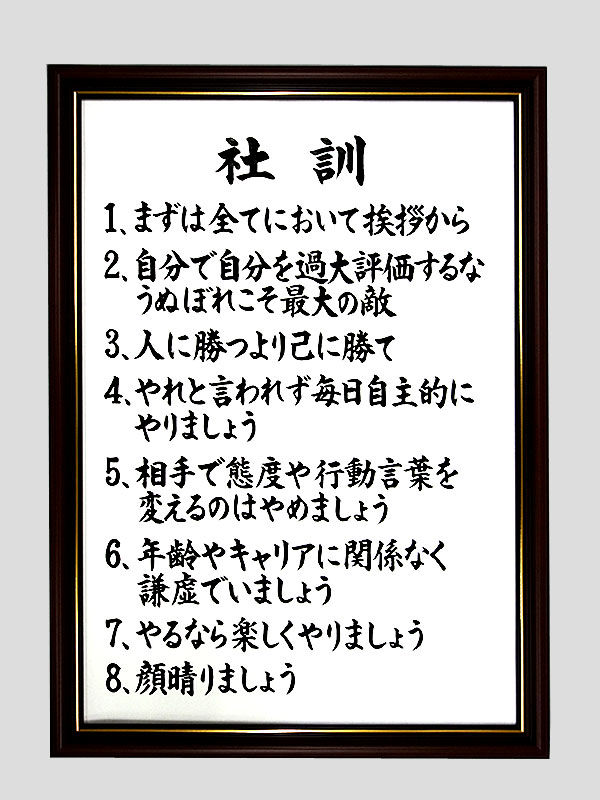 社 訓
1、まずは全てにおいて挨拶から
2、自分で自分を過大評価するな
うぬぼれこそ最大の敵
3、人に勝つより己に勝て
4、やれと言われず毎日自主的に
やりましょう
5、相手で態度や行動言葉を
変えるのはやめましょう
6、年齢やキャリアに関係なく
謙虚でいましょう
7、やるなら楽しくやりましょう
8、顔晴りましょう